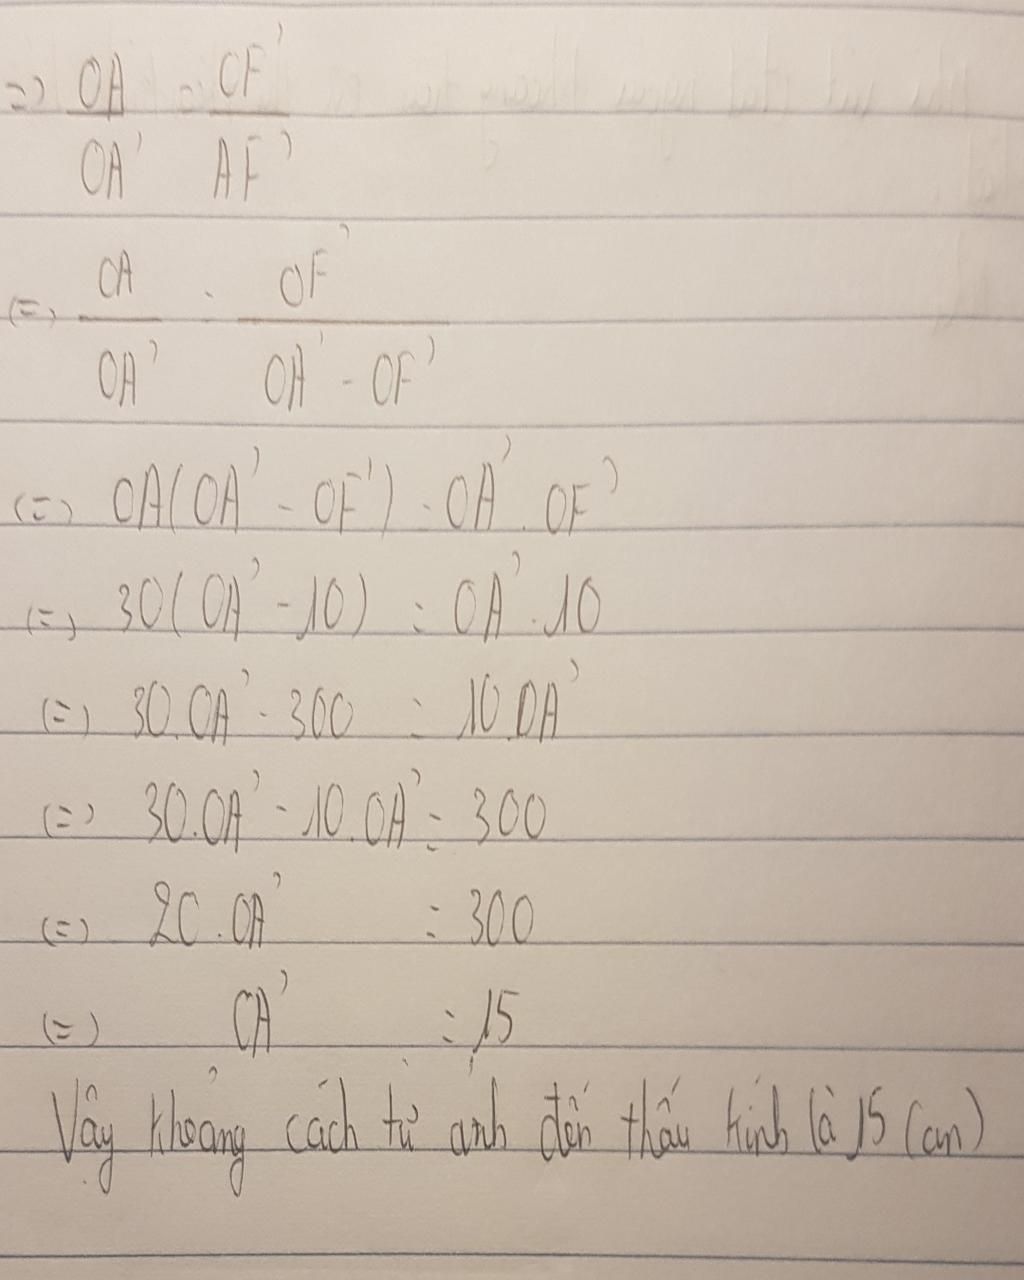 => OA/OA' = OF'/AF'
<=> OA/OA' = OF'/OA' - OF'
<=> OA(OA' - OF') = OA'. OF'
<=> 30(OA' - 10) = OA'.10
<=> 30.OA' - 300 = 10.OA'
<=> 30.OA' - 10.OA' = 300
<=> 20.OA' = 300
<=> OA' = 15
Vậy khoảng cách từ ảnh đến thấu kính là 15 (cm)